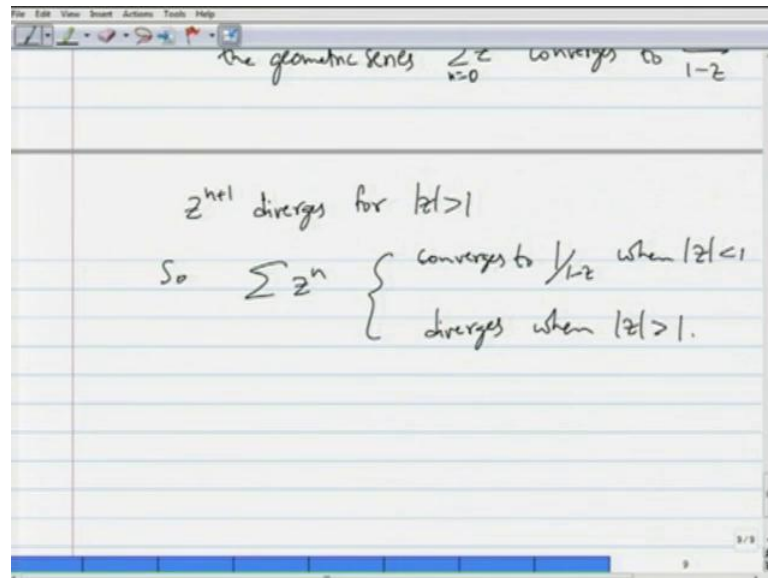 File Edit View Insert Actions Tools Help
the geometric series ∑ z converges to
n=0 1-z
z^{n+1} diverges for |z|>1
So ∑ z^n { converges to 1/1-z when |z|<1
diverges when |z|>1.
3/3
9